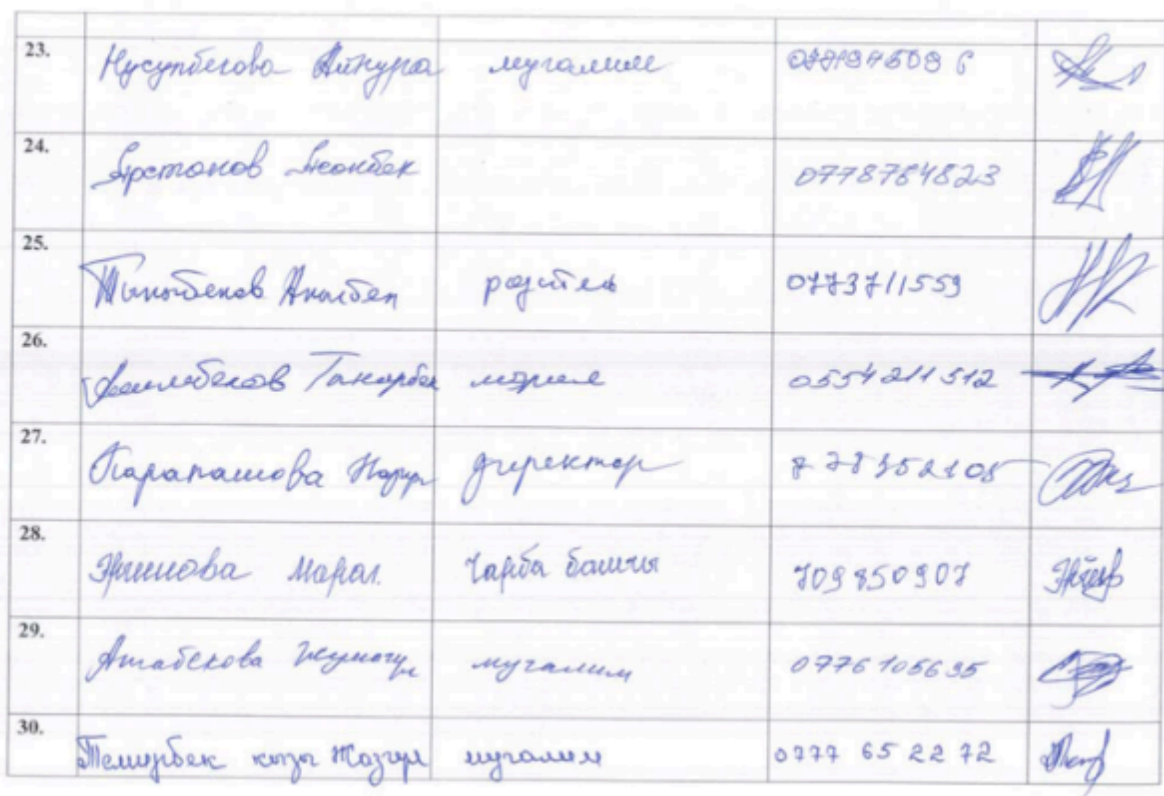 23. Нусупбекова Айнура мугалим 0771945096
24. Арстанов 0778784823
25. Тыныбеков Акылбек родитель 0773711559
26. Танарбек 0554211512
27. Карапашова директор 778352105
28. чарба башчы 709850907
29. Атабекова Жумагул мугалим 0776105635
30. Темирбек кызы Жазгул мугалим 0777 65 22 72